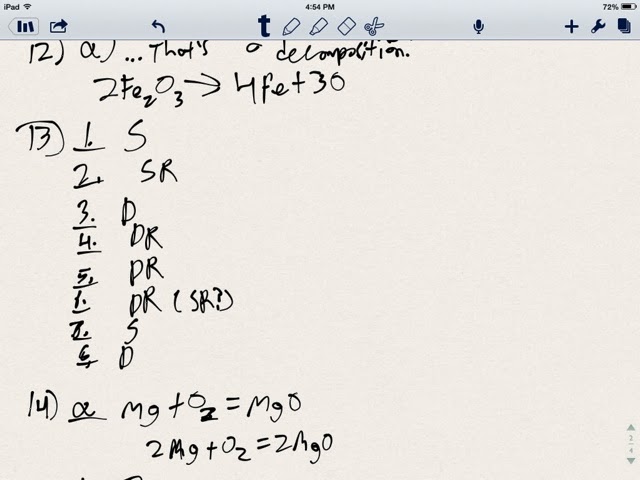 iPad 4:54 PM 72%
t
12) a) ...That's a decomposition.
2Fe₂O₃→4Fe+3O
13) 1. S
2. SR
3. D
4. DR
5. DR
1. DR (SR?)
S
D
14) a Mg+O₂=MgO
2Mg+O₂=2MgO
2
4